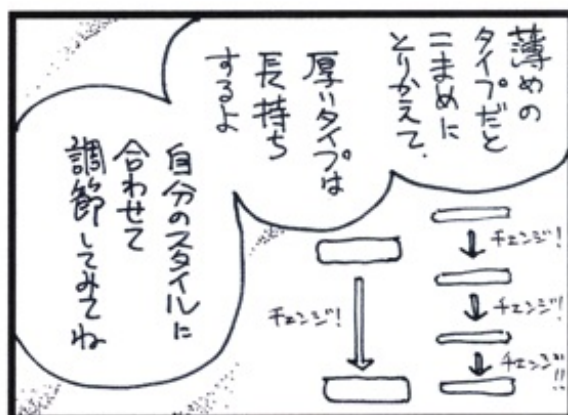 薄めの
タイプだと
こまめに
とりかえて、
厚いタイプは
長持ち
するよ
自分のスタイルに
合わせて
調節してみてね
チェンジ!
チェンジ!
チェンジ!!
チェンジ!